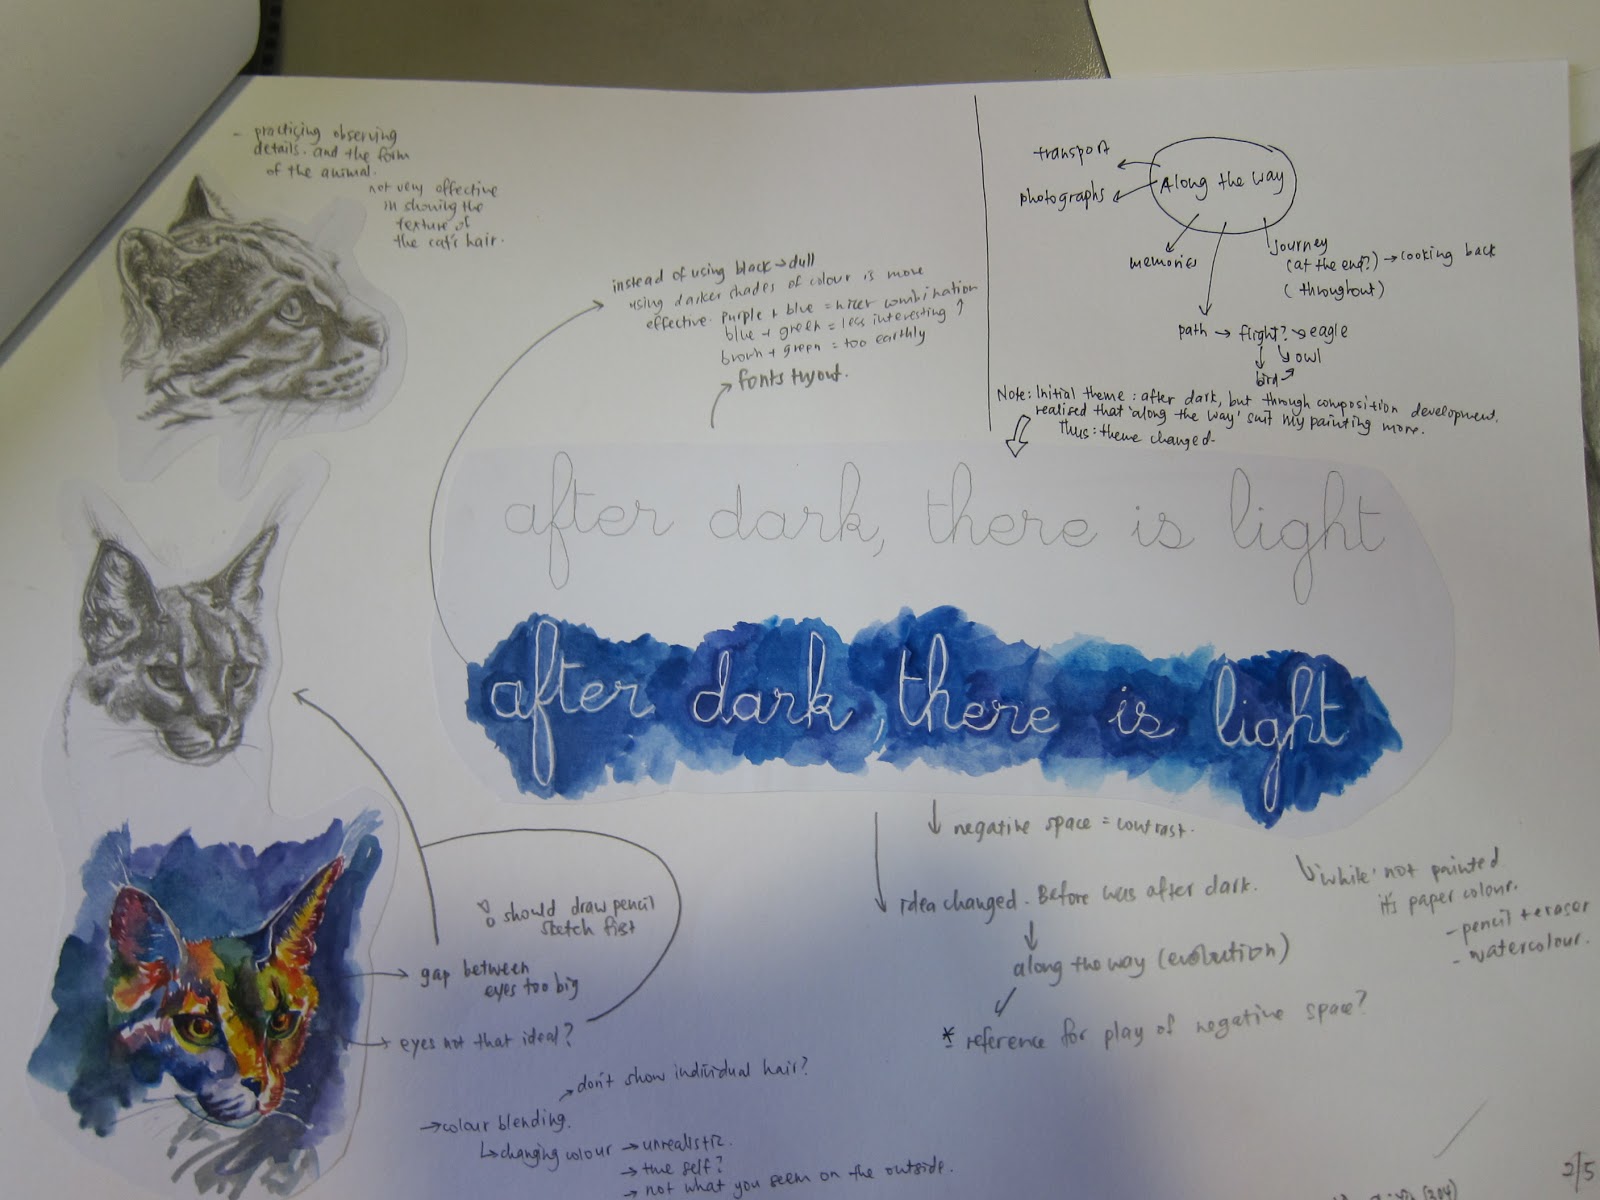 - practicing observing
details. and the form
of the animal.
not very effective
in showing the
texture of
the cat's hair.
instead of using black → dull
using darker shades of colour is more
effective. purple + blue = nicer combination
blue + green = less interesting
brown + green = too earthly
fonts tryout.
Along the way
transport
photographs
memories
journey
(at the end?) → looking back
(throughout)
path → flight? → eagle
owl
bird
Note: Initial theme: after dark, but through composition development,
realised that 'along the way' suit my painting more.
Thus: theme changed.
after dark, there is light
after dark, there is light
negative space = contrast.
'white' not painted
it's paper colour.
- pencil + eraser
- watercolour.
idea changed. Before was after dark.
along the way (evolution)
* reference for play of negative space?
should draw pencil
sketch first
gap between
eyes too big
eyes not that ideal?
don't show individual hair?
→ colour blending.
changing colour → unrealistic.
→ true self?
→ not what you seem on the outside.
2/5